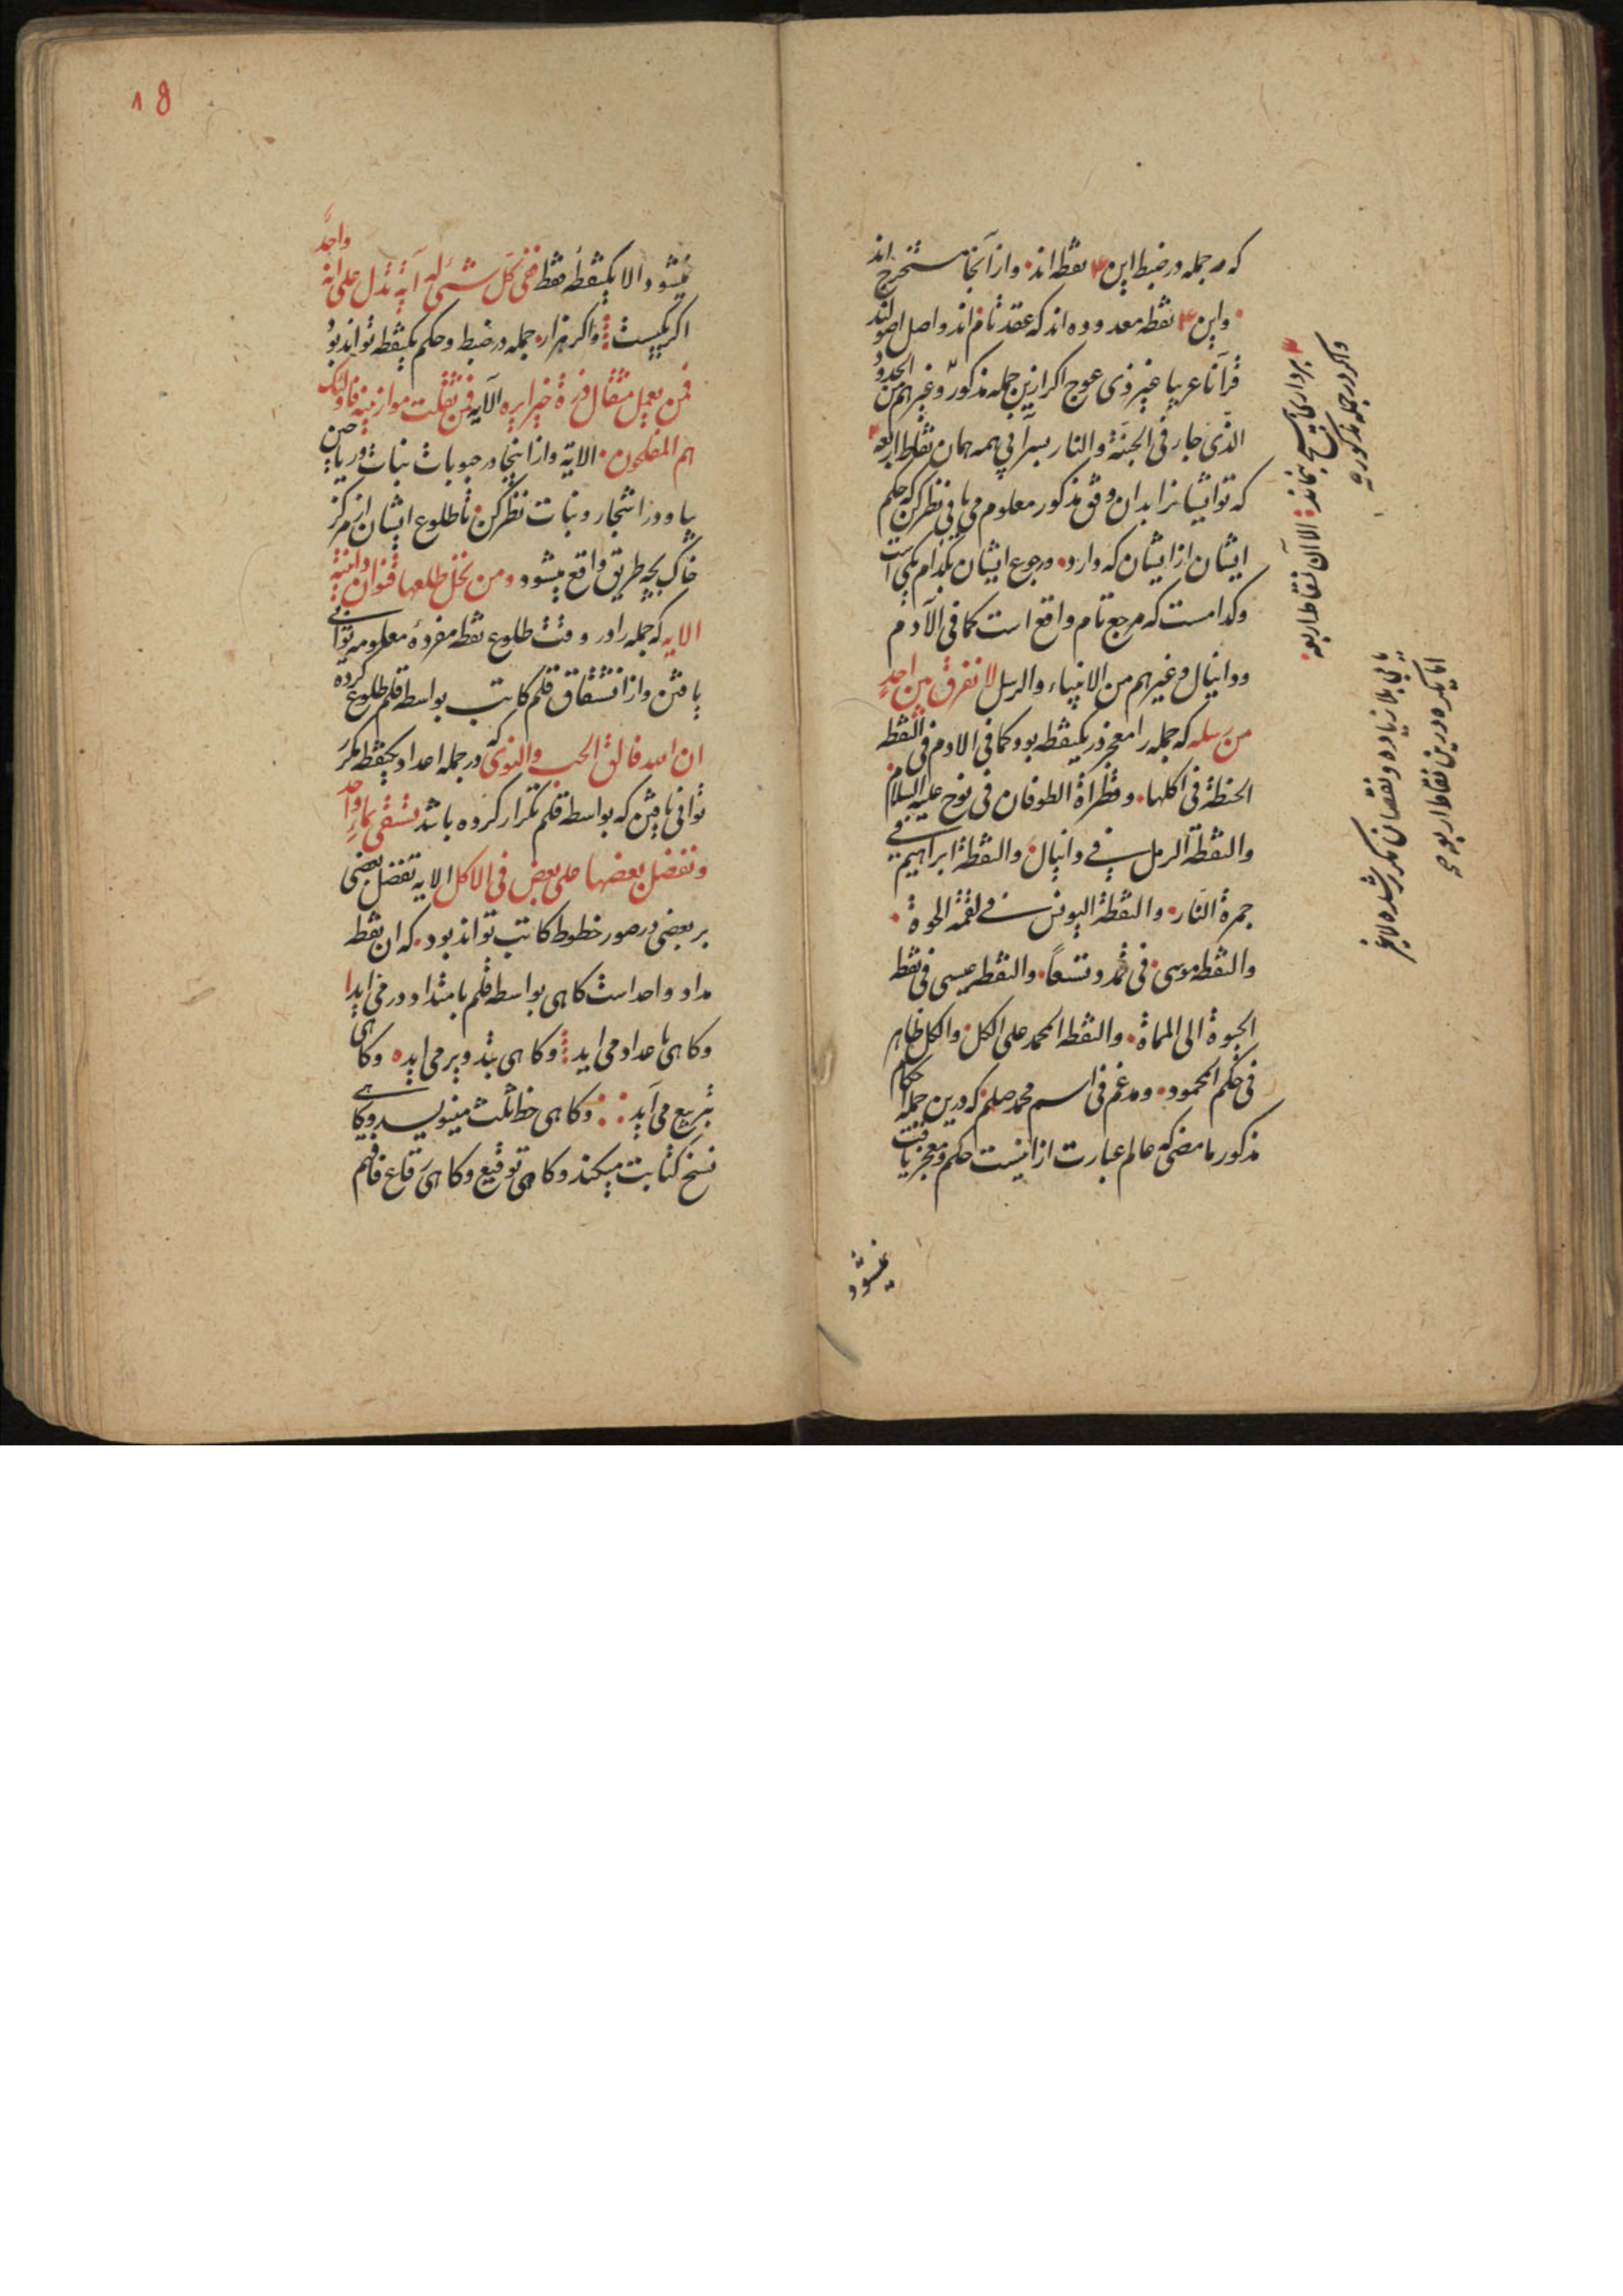 که هر جمله در ضبط این ۴ نقطه اند و از آنجا مستخرج اند
و این ۴ نقطه معدوده اند که عقد تام اند و اصل اصولند
قرآنا عربیا غیر ذی عوج اکر ازین جمله مذکور و غیرهم من الحدود
الذی جار فی الجنة والنار سیرانی همه همان نقاط اربعه ۴
که تو ایشانرا بدان وفق مذکور معلوم می یابی نظر کن که حکم
ایشان از ایشان که دارد و رجوع ایشان بکدام یکی است
و کدامست که مرجع تام واقع است کما فی الآدم
و دانیال و غیرهم من الانبیاء والرسل لا نفرق بین احد
من رسله که جمله را معجز در یکنقطه بود کما فی الادم فی النقطه
الحنطة فی اکلها و قطراة الطوفان فی نوح علیه السلام
والنقطة الرمل فی دانیال والنقطة ابراهیم فی
جمرة النار والنقطة الیونس فی لقمة الحوة
والنقطه موسی فی و تسعاً والنقطه عیسی فی نقط
الحیوة الی المماة والنقطه المحمد علی الکل والکل ظاهر
فی حکم المحمود و مدغم فی اسم محمد صلم که درین جمله احکام
مذکور ما مضی که عالم عبارت از اینست حکم و معجز یافت
نمیشود
۴ برداری هیچ نماند الا آن نقاط اربعه
و اکر در جمله مذکوره
یابی بلا زیاده و نقصان مکرر شده لا غیر
اما یکره درین نقاط اربعه
18
نمیشود الا بیکنقطه فقط ففی کل شیء له آیة تدل علی انه واحد
اکر بیست و اکر هزار جمله در ضبط و حکم یکنقطه تواند بود
فمن یعمل مثقال ذرة خیرا یره الآیه فمن ثقلت موازینه فاولئک
هم المفلحون الایة و از اینجا در حبوبات نبات و ریاحین
بیا و در اشجار و نبات نظر کن تا طلوع ایشان از مرکز
خاک بچه طریق واقع میشود و من نخل طلعها قنوان دانیة
الایه که جمله را در وقت طلوع نقطه مفرده معلومه توانی
یافتن و از انشقاق قلم کاتب بواسطه قلم طلوع کرده
ان الله فالق الحب والنوی که در جمله اعداد یکنقطه مکرر
توانی یافتن که بواسطه قلم تکرار کرده باشد تسقی بماء واحد
و نفضل بعضها علی بعض فی الاکل الایه تفضل بعضی
بر بعضی در صور خطوط کاتب تواند بود که ان نقطه
مداد واحد است کاهی بواسطه قلم بامتداد در می اید ا
و کاهی باعداد می اید و کاهی بتدویر می اید ه و کاهی
بتربیع می آید و کاهی خط ثلث مینویسد و کاهی
نسخ کتابت میکند و کاهی توقیع و کاهی رقاع فافهم